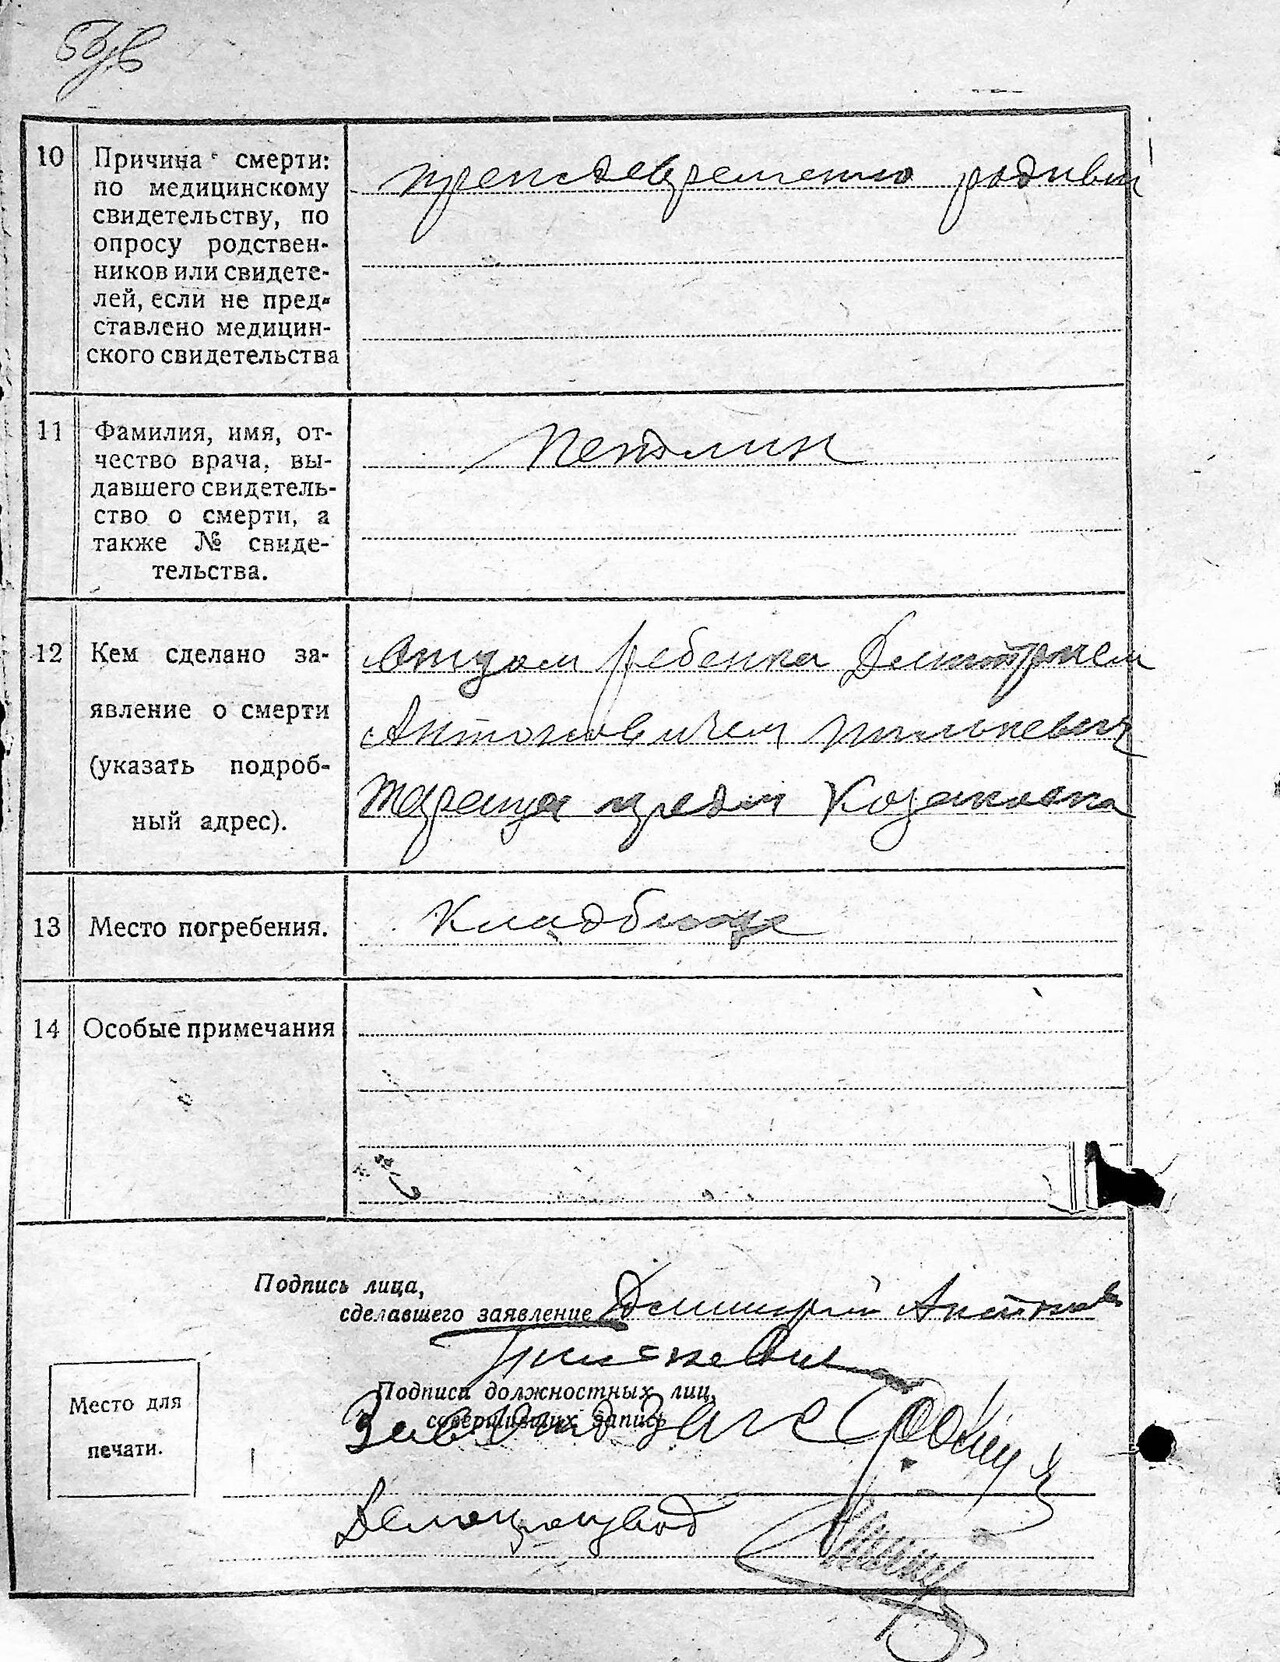 10
Причина смерти:
по медицинскому
свидетельству, по
опросу родствен-
ников или свидете-
лей, если не пред-
ставлено медицин-
ского свидетельства
преждевременно родивш
11
Фамилия, имя, от-
чество врача, вы-
давшего свидетель-
ство о смерти, а
также № свиде-
тельства.
12
Кем сделано за-
явление о смерти
(указать подроб-
ный адрес).
отцом ребенка Дмитрием
Антоновичем
Тараща предм Козаковка
13
Место погребения.
Кладбище
14
Особые примечания
Подпись лица,
сделавшего заявление Дмитрий Антонов
Место для
печати.
Подписи должностных лиц,
совершивших запись
Завотд загс
Делопроизвод